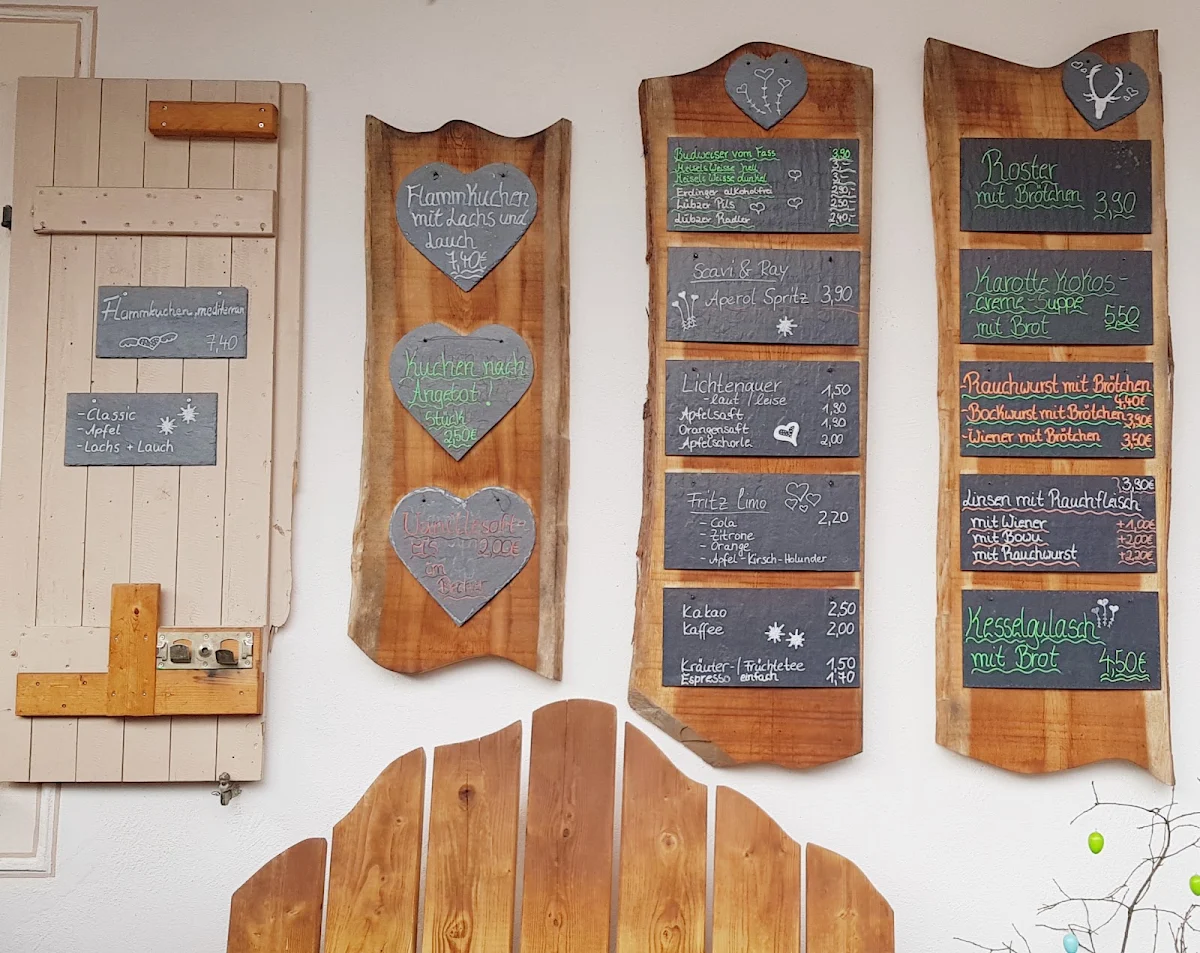 Flammkuchen, mediterran
7,40
-Classic
-Apfel
-Lachs + Lauch
Flammkuchen
mit Lachs und
Lauch
7,40€
Kuchen nach
Angebot!
Stück
2,50€
eis 2,00€
im
Becher
Budweiser vom Fass 3,90
Meisels Weisse hell
Meisels Weisse dunkel
Erdinger alkoholfrei
Lübzer Pils
Lübzer Radler 2,40,-
Scavi & Ray
Aperol Spritz 3,90
Lichtenauer 1,50
-laut / leise
Apfelsaft 1,90
Orangensaft 1,90
Apfelschorle 2,00
Fritz Limo 2,20
- Cola
- Zitrone
- Orange
- Apfel-Kirsch-Holunder
Kakao 2,50
Kaffee 2,00
Kräuter-/Früchtetee 1,50
Espresso einfach 1,70
Roster
mit Brötchen 3,90
Karotte Kokos-
creme-Suppe
mit Brot 5,50
-Rauchwurst mit Brötchen
4,40€
-Bockwurst mit Brötchen 3,90€
-Wiener mit Brötchen 3,50€
3,90€
Linsen mit Rauchfleisch
mit Wiener +1,00€
mit Bowu +2,00€
mit Rauchwurst +2,20€
Kesselgulasch
mit Brot 4,50€